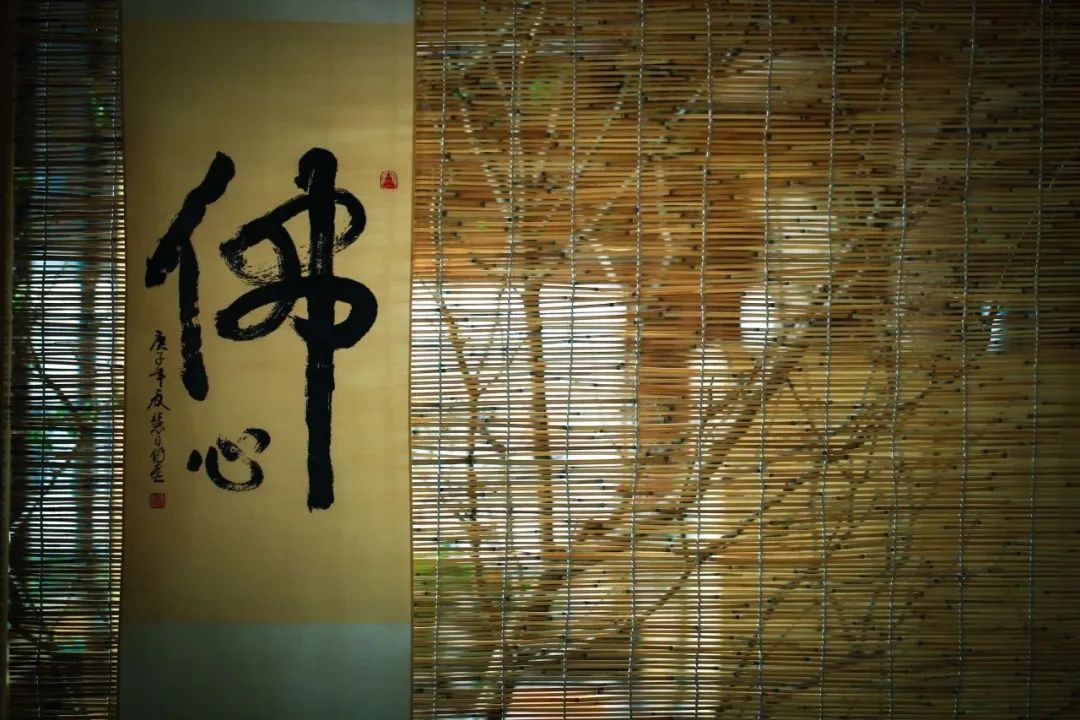 佛心
庚子年夏慧日